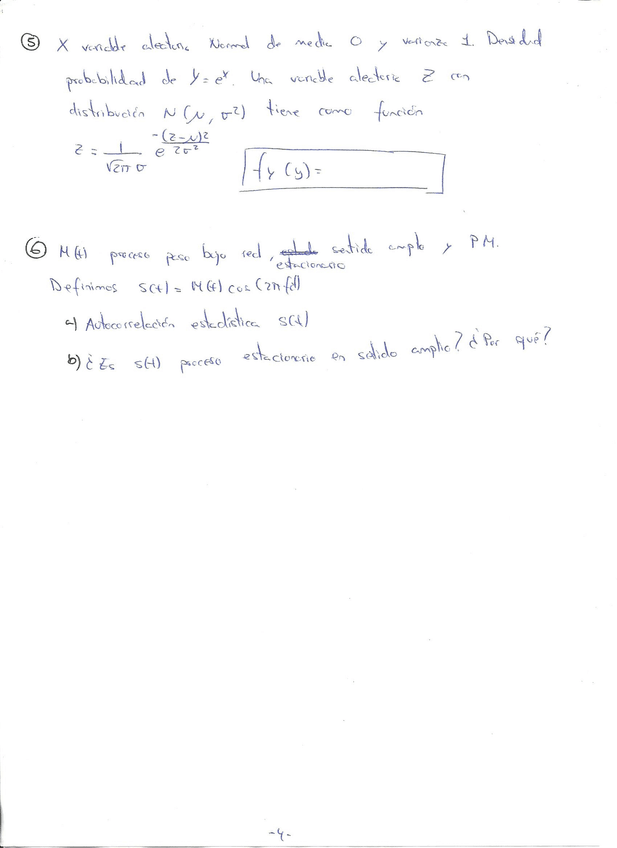 ⑤ X variable aleatoria Normal de media 0 y varianza 1. Densidad
probabilidad de Y = eˣ. Una variable aleatoria Z con
distribución N(μ, σ²) tiene como función
z = 1/(√2π σ) e^(-(z-μ)²/2σ²)
fy (y) =
⑥ M(t) proceso paso bajo real, sentido amplio y PM.
estacionario
Definimos S(t) = M(t) cos(2πfct)
a) Autocorrelación estadística S(t)
b) ¿Es S(t) proceso estacionario en sentido amplio? ¿Por qué?
-4-